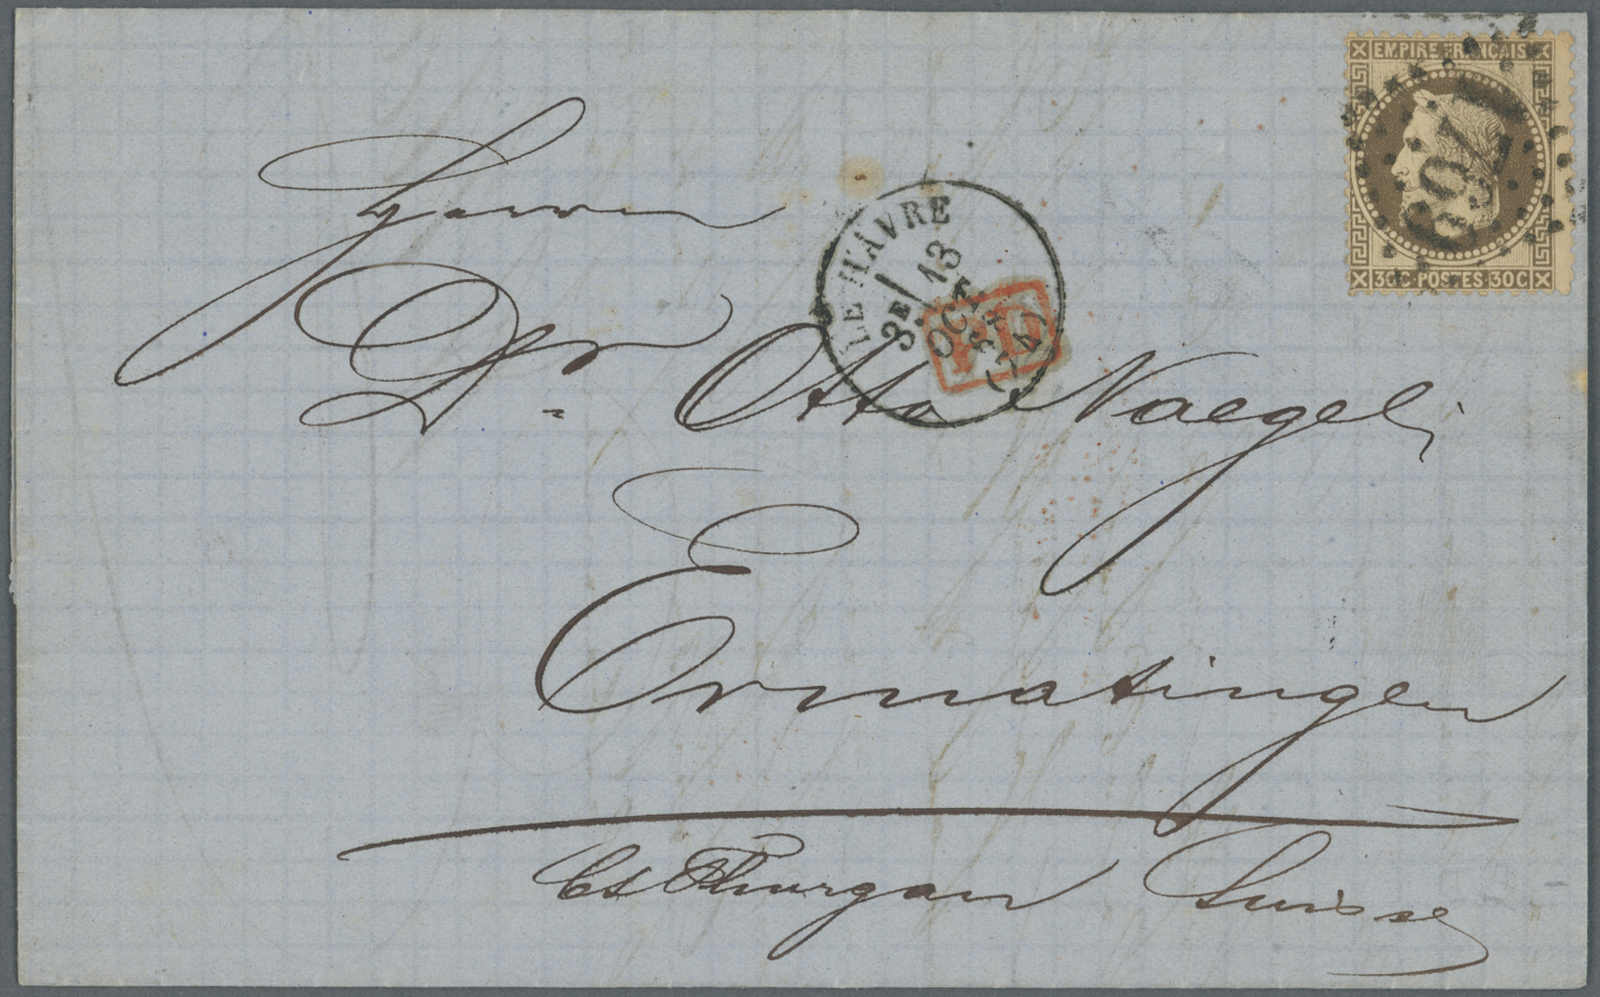 EMPIRE FRANÇAIS
30C·POSTES·30C
769
LE HAVRE
3E
13
OCT.
(74)
PD
Herrn
Dr. Otto Naegeli
Ermatingen
Ct Thurgau Suisse